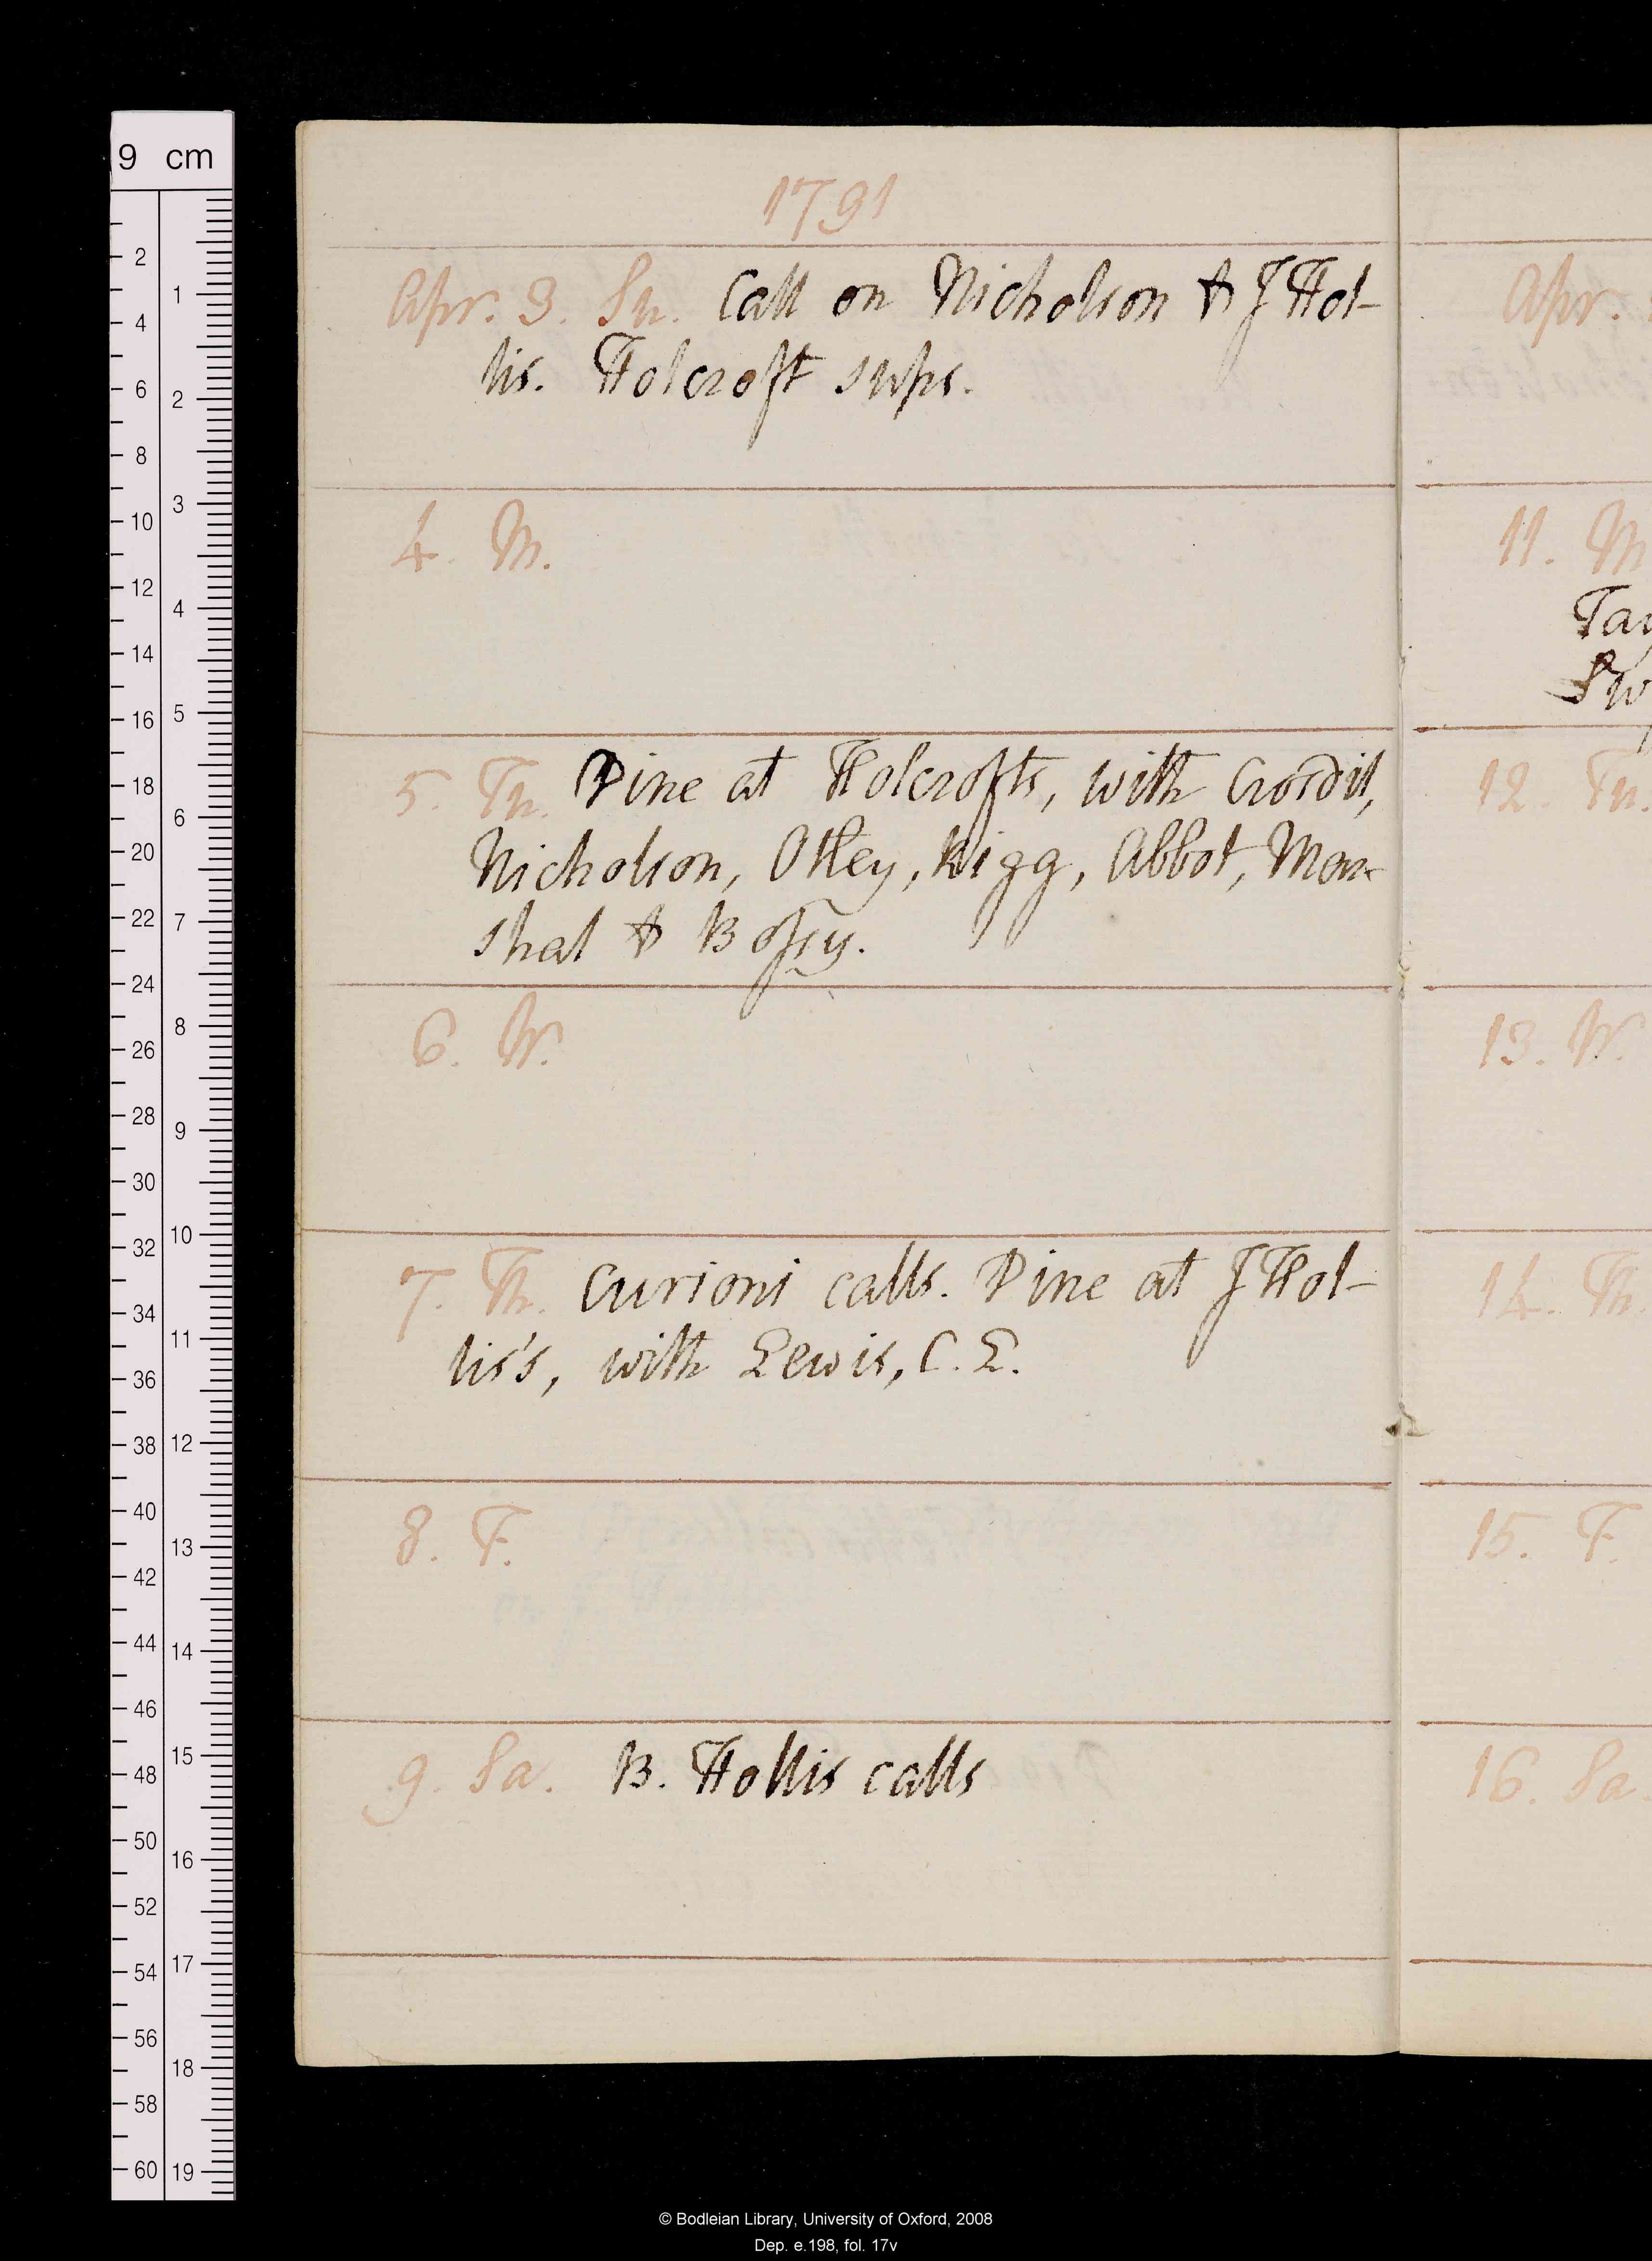 1791
Apr. 3. Su. Call on Nicholson & J Hol-
lis. Holcroft sups.
4. M.
5. Tu. Dine at Holcrofts, with Crosdil,
Nicholson, Otley, Rigg, Abbot, Mar-
shal & Bossy.
6. W.
7. Th. Curioni calls. Dine at J Hol-
lis's, with Lewis, C. L.
8. F.
9. Sa. B. Hollis calls
Apr.
11. M
Tay
Sw
12. Tu.
13. W.
14. Th
15. F.
16. Sa.
9 cm
2
4
6
8
10
12
14
16
18
20
22
24
26
28
30
32
34
36
38
40
42
44
46
48
50
52
54
56
58
60
1
2
3
4
5
6
7
8
9
10
11
12
13
14
15
16
17
18
19
© Bodleian Library, University of Oxford, 2008
Dep. e.198, fol. 17v